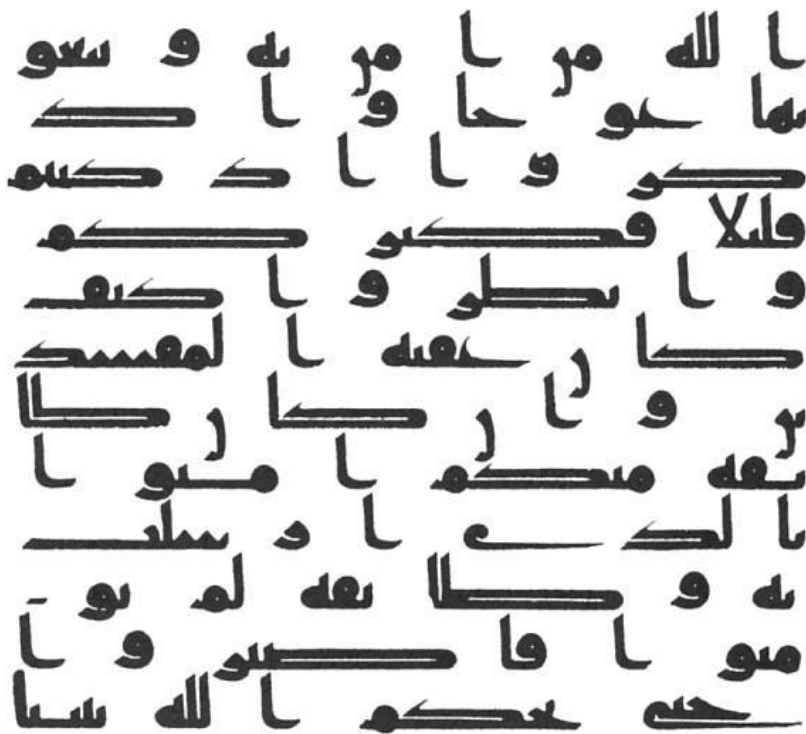 الله من امن به و تبغو
نها عوجا و اذ
كروا اذ كنتم
قليلا فكثركم
و انظروا كيف
كان عقبه المفسد
ين و ان كان طا
ئفه منكم امنوا
بالذي ارسلت
به و طائفه لم يو
منوا فاصبروا
حتى يحكم الله بيننا